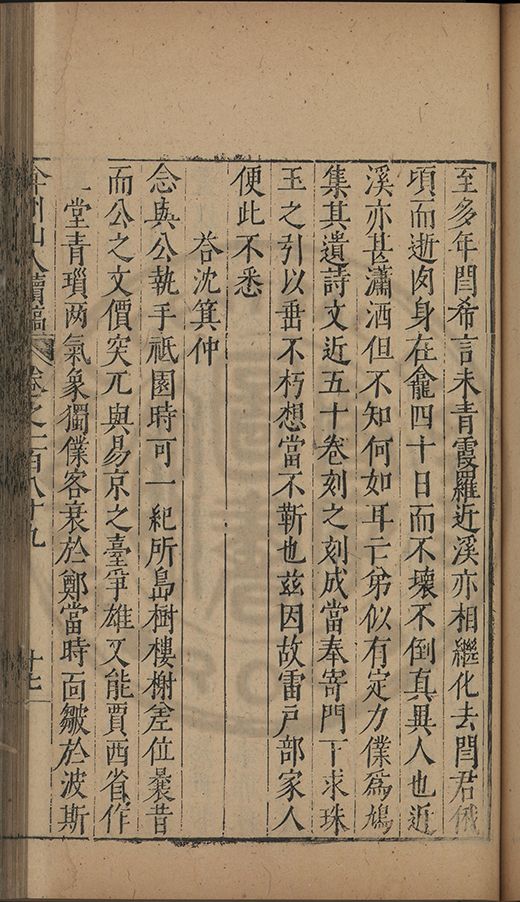 至多年閆希言朱青霞羅近溪亦相繼化去閆君俄
頃而逝肉身在龕四十日而不壞不倒真異人也近
溪亦甚瀟洒但不知何如耳亡弟似有定力僕爲鳩
集其遺詩文近五十卷刻之刻成當奉寄門下求珠
玉之引以垂不朽想當不靳也兹因故雷戸部家人
便此不悉
荅沈箕仲
念與公執手祗園時可一紀所島樹樓榭差位曩昔
而公之文價突兀與易京之臺爭雄又能賈西省作
一堂青瑣两氣象獨僕客衰於鄭當時面皺於波斯
弇州山人續稿 卷之一百八十九 十七